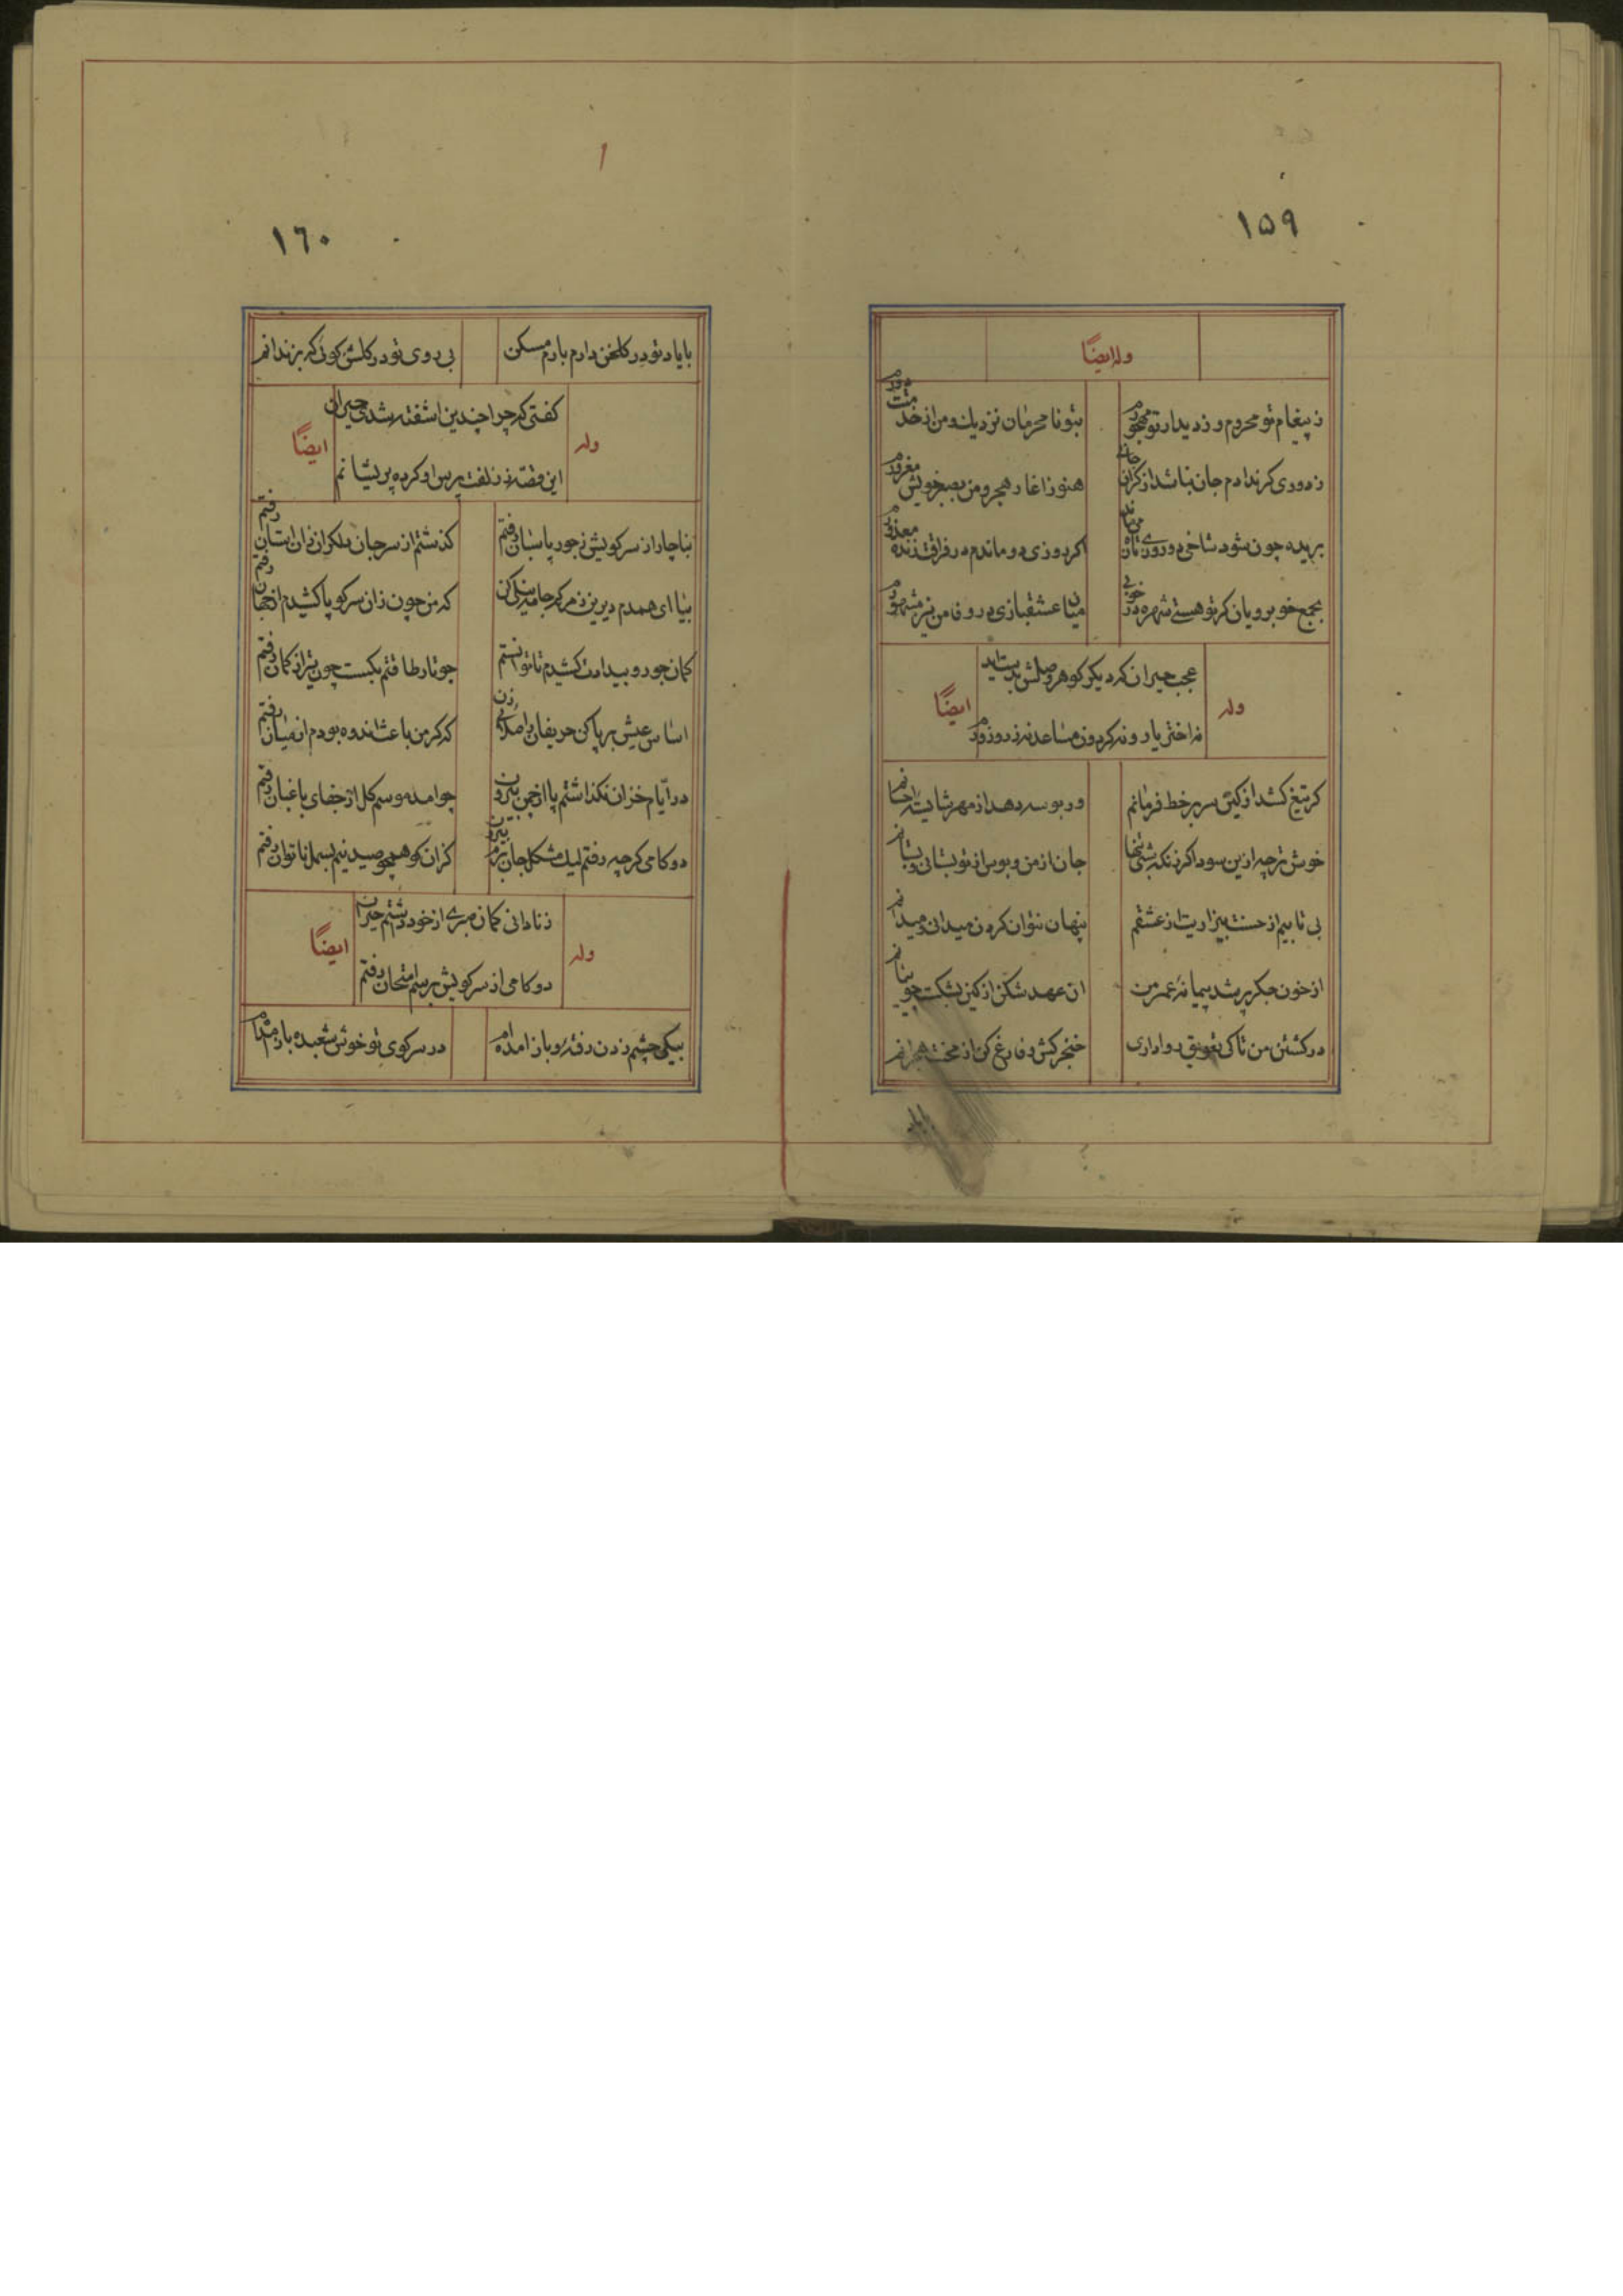 ۱۵۹
وله ایضًا
ز پیغام تو محروم و ز دیدار تو مهجورم
بتو نامحرمان نزدیک و من از خدمتت دورم
ز دوری کر ندادم جان نباشد از کران جانی
هنوز اغاز هجر و من بصبر خویش مغرورم
بریده چون شود شاخی دو روزی تازه می ماند
اکر روزی دو ماندم در فراقت زنده معذورم
بجمع خوبرویان کر تو هستی شهره در خوبی
میان عشقبازی در وفا من نیز مشهورم
عجب حیران که دیکر کوهر وصلش بدست اید
وله
ایضًا
نه اختر یار و نه کردون مساعد نه زر و زورم
کر تیغ کشد از کین سر بر خط فرمانم
ور بوسه دهد از مهر شایسته احسانم
خوش تر چه ازین سودا کر زنکه بشی تنها
جان از من و بوس از تو بستانی و بستانم
بی تابیم از حسنت بیزاریت از عشقم
پنهان نتوان کردن میدانی و میدانم
از خون جکر پر شد پیمانه عمر من
ان عهد شکن از کین بشکست چو پیمانم
در کشتن من تا کی تعویق روا داری
خنجر کش و فارغ کن از محنت هجرانم
بایاد
۱٦۰
با یاد تو در کلخن دارم بارم مسکن
بی روی تو در کلشن کوئی که بزندانم
کفتی که چرا چندین اشفته شدی حیران
وله
ایضًا
این قصه ز زلفت پرس او کرده پریشانم
بناچار از سر کویش ز جور پاسبان رفتم
کذشتم از سر جان دل کران زان استان رفتم
بیا ای همدم دیرین ز مرکم جامه نیلی کن
که من چون زان سر کو پا کشیدم از جهان رفتم
کمان جور و بیدادت کشیدم تا توانستم
چو تار طاقتم بکسست چون تیر از کمان رفتم
اساس عیش بر پا کن حریفان را صلائی زن
که کر من باعث اندوه بودم از میان رفتم
در ایّام خزان نکذاشتم پا از چمن بیرون
چو امد موسم کل از جفای باغبان رفتم
دو کامی کرچه رفتم لیک مشکل جان برم بیرون
کزان کو همچو صید نیم بسمل ناتوان رفتم
ز نادانی کمان صبری از خود داشتم حیران
وله
ایضًا
دو کامی از سر کویش برسم امتحان رفتم
بیکی چشم زدن رفته و باز امده ام
در سر کوی تو خوش شعبده باز امده ام